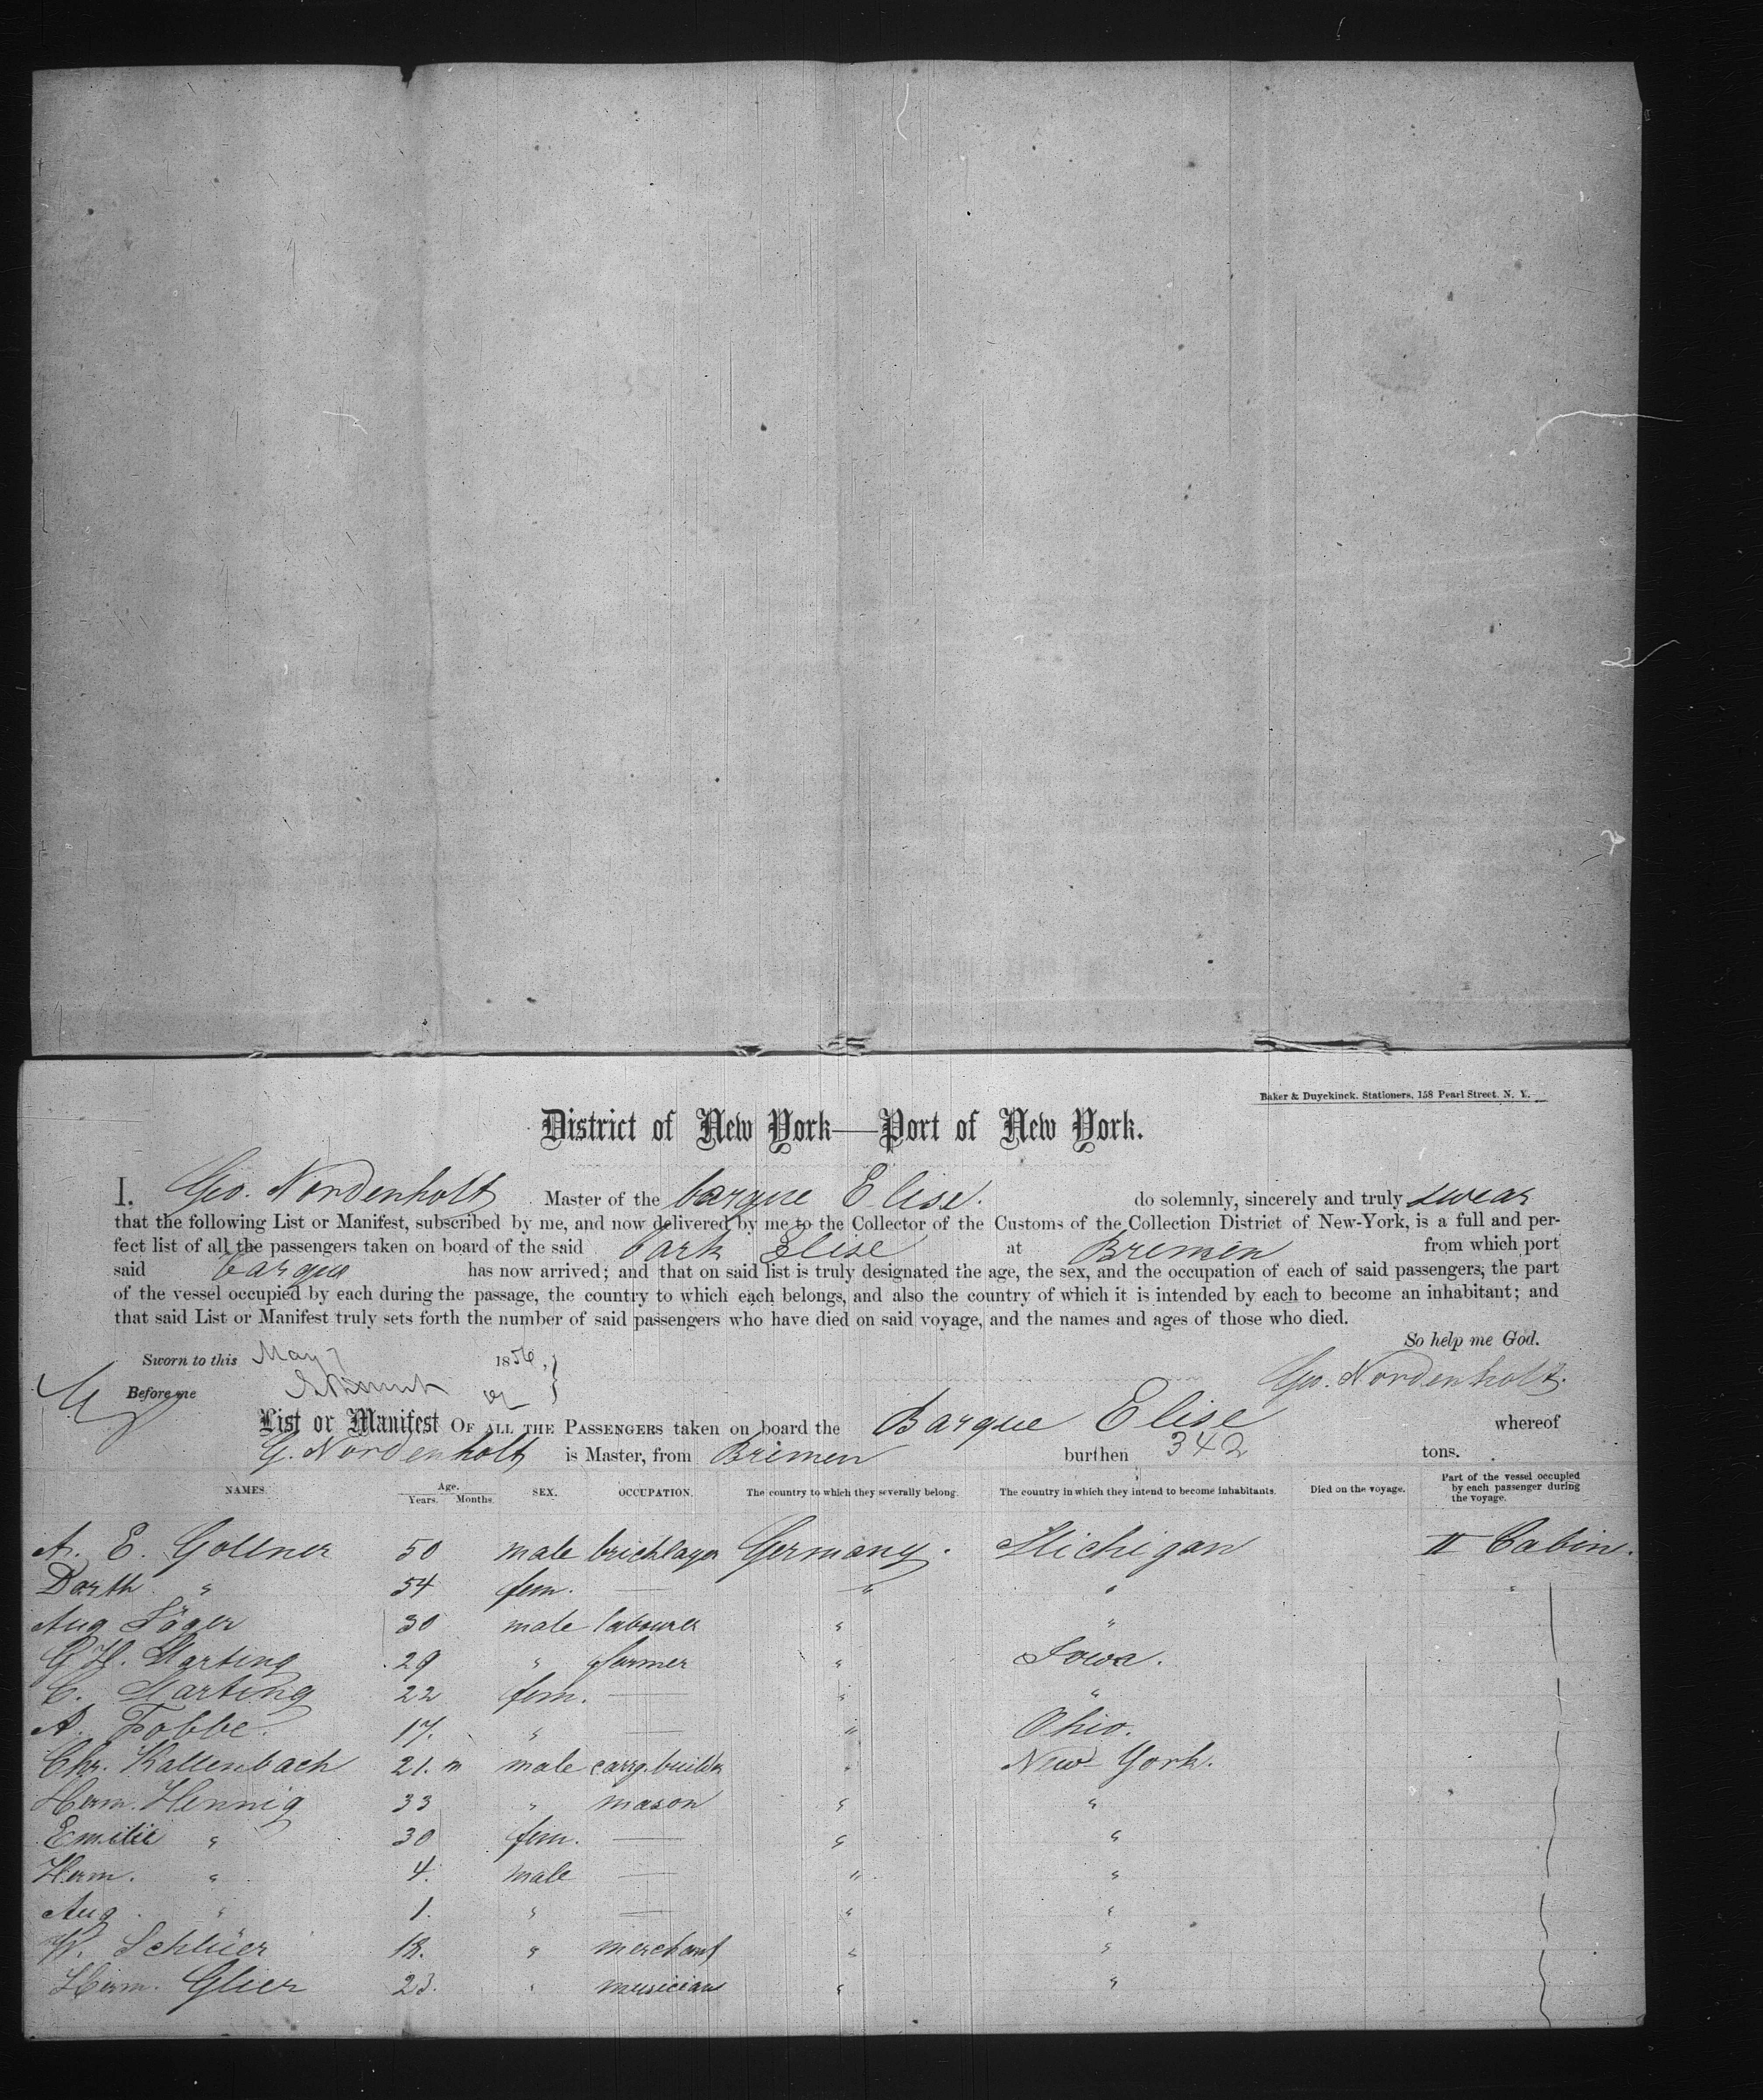 Baker & Duyckinck. Stationers, 158 Pearl Street. N. Y.
District of New York—Port of New York.
I. Geo. Nordenholt Master of the barque Elise. do solemnly, sincerely and truly swear
that the following List or Manifest, subscribed by me, and now delivered by me to the Collector of the Customs of the Collection District of New-York, is a full and per-
fect list of all the passengers taken on board of the said bark Elise at Bremen from which port
said barque has now arrived; and that on said list is truly designated the age, the sex, and the occupation of each of said passengers, the part
of the vessel occupied by each during the passage, the country to which each belongs, and also the country of which it is intended by each to become an inhabitant; and
that said List or Manifest truly sets forth the number of said passengers who have died on said voyage, and the names and ages of those who died.
So help me God.
Sworn to this May 7 1856,
Before me Geo. Nordenholt.
List or Manifest OF ALL THE PASSENGERS taken on board the Barque Elise whereof
G. Nordenholt is Master, from Bremen burthen 342 tons.
NAMES. Age. Years. Months. SEX. OCCUPATION. The country to which they severally belong. The country in which they intend to become inhabitants. Died on the voyage. Part of the vessel occupied by each passenger during the voyage.
A. E. Gollner 50 male bricklayer Germany. Michigan II Cabin.
Dorth " 54 fem. — " " "
Aug Jäger 30 male labourer " "
G H. Harting 29 " farmer " Iowa.
C. Harting 22 fem. — " "
A. Fobbe. 17. " — " Ohio.
Chr. Kallenbach 21. m male carrg. builder " New York.
Herm. Hennig 33 " mason " "
Emilie " 30 fem. — " "
Herm. " 4. male — " "
Aug. " 1. " — " "
W. Schlüer 18. " merchant " "
Herm. Glier 23. " musician " "